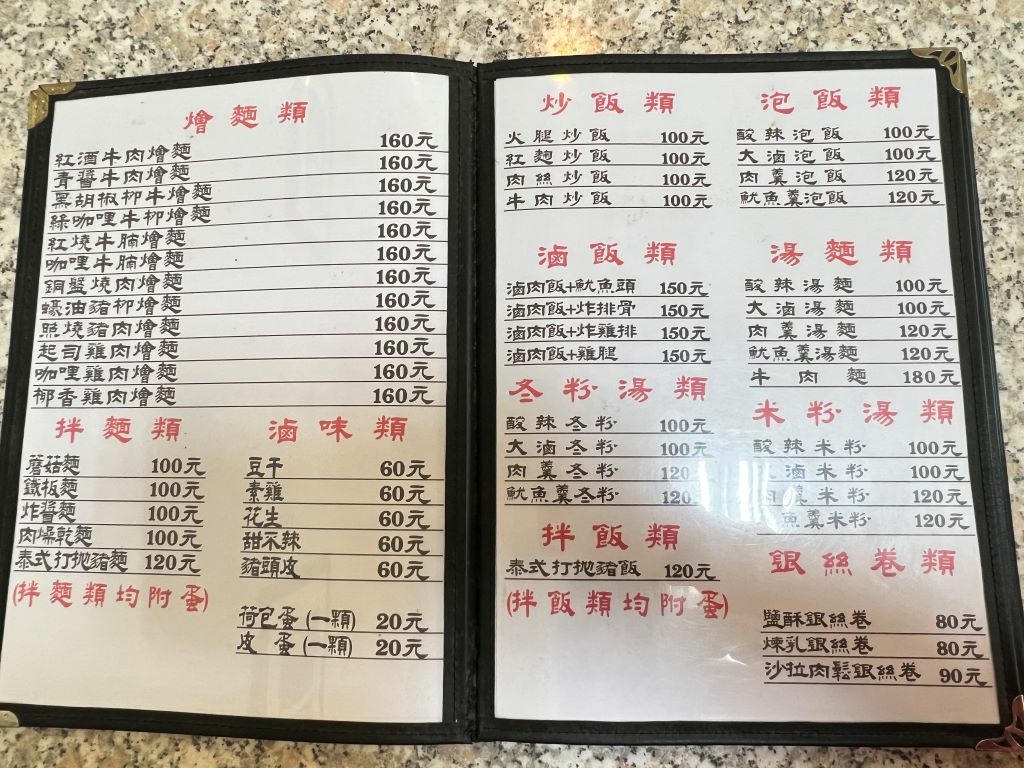 燴麵類
紅酒牛肉燴麵 160元
青醬牛肉燴麵 160元
黑胡椒柳牛燴麵 160元
綠咖哩牛柳燴麵 160元
紅燒牛腩燴麵 160元
咖哩牛腩燴麵 160元
銅盤燒肉燴麵 160元
蠔油豬柳燴麵 160元
照燒豬肉燴麵 160元
起司雞肉燴麵 160元
咖哩雞肉燴麵 160元
椰香雞肉燴麵 160元
拌麵類
蘑菇麵 100元
鐵板麵 100元
炸醬麵 100元
肉燥乾麵 100元
泰式打拋豬麵 120元
(拌麵類均附蛋)
滷味類
豆干 60元
素雞 60元
花生 60元
甜不辣 60元
豬頭皮 60元
荷包蛋(一顆) 20元
皮蛋(一顆) 20元
炒飯類
火腿炒飯 100元
紅麴炒飯 100元
肉絲炒飯 100元
牛肉炒飯 100元
滷飯類
滷肉飯+魷魚頭 150元
滷肉飯+炸排骨 150元
滷肉飯+炸雞排 150元
滷肉飯+雞腿 150元
冬粉湯類
酸辣冬粉 100元
大滷冬粉 100元
肉羹冬粉 120
魷魚羹冬粉 120
拌飯類
泰式打拋豬飯 120元
(拌飯類均附蛋)
泡飯類
酸辣泡飯 100元
大滷泡飯 100元
肉羹泡飯 120元
魷魚羹泡飯 120元
湯麵類
酸辣湯麵 100元
大滷湯麵 100元
肉羹湯麵 120元
魷魚羹湯麵 120元
牛肉麵 180元
米粉湯類
酸辣米粉 100元
滷米粉 100元
肉羹米粉 120元
魚羹米粉 120元
銀絲卷類
鹽酥銀絲卷 80元
煉乳銀絲卷 80元
沙拉肉鬆銀絲卷 90元